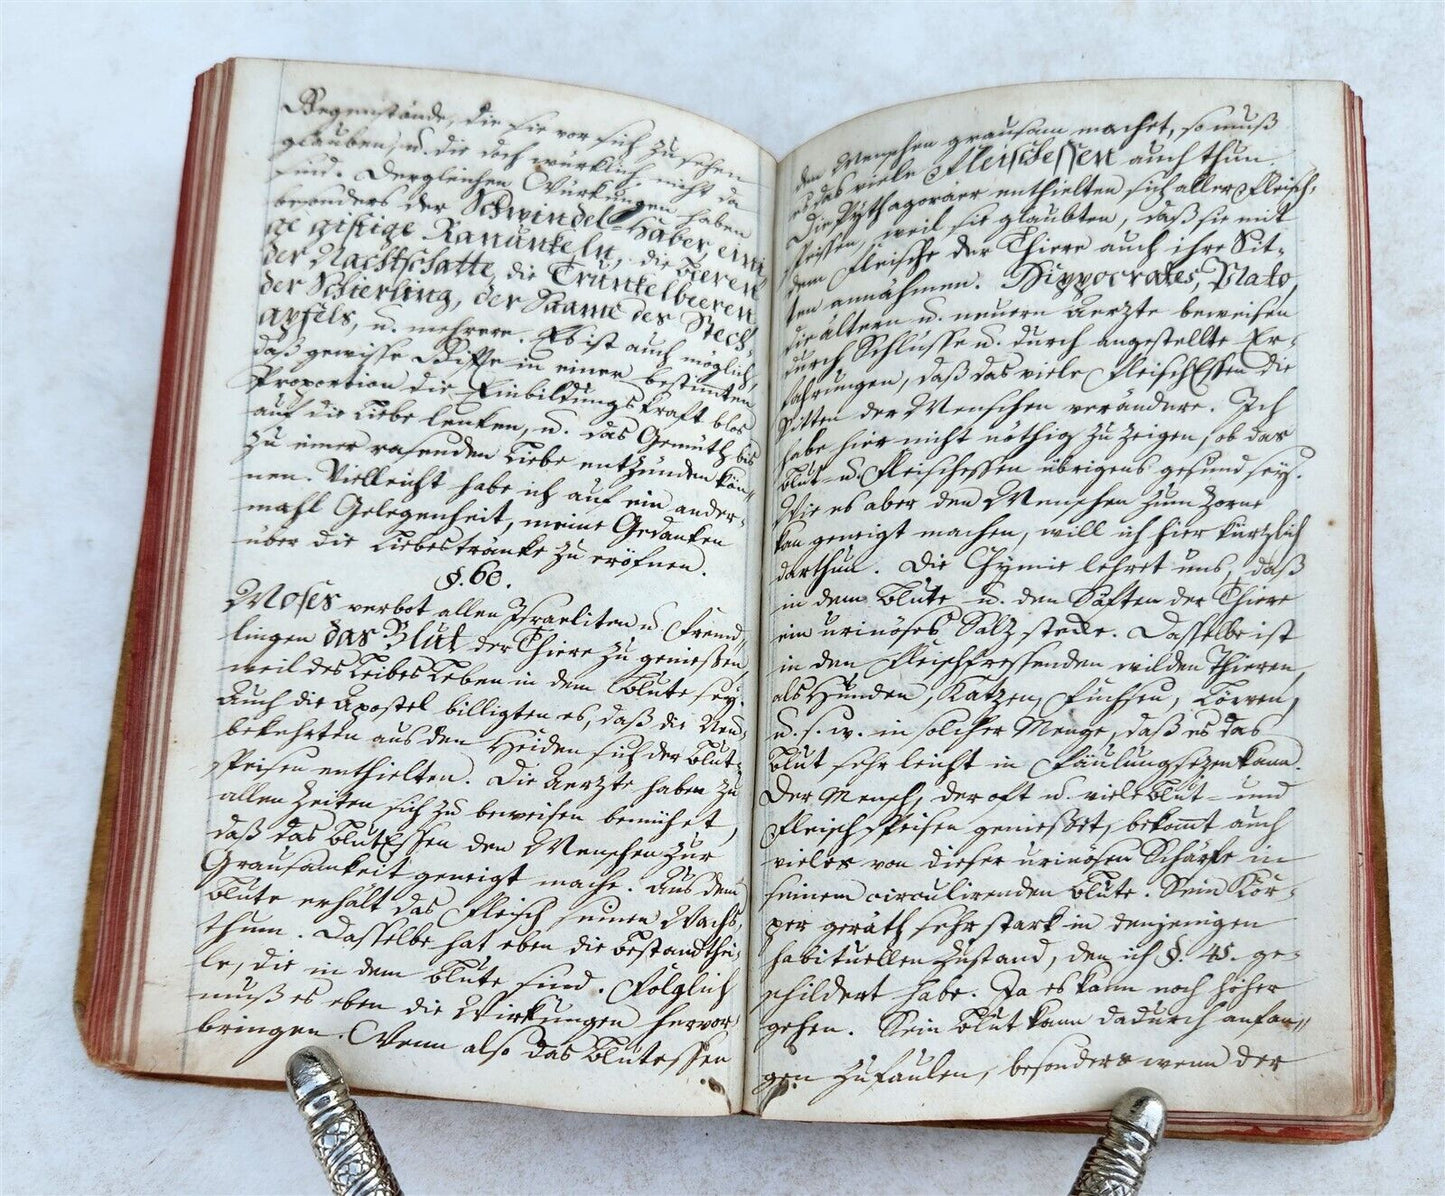 Gegenstände, die sie vor sich zu sehen
glauben, u. die doch würklich nicht da
sind. Dergleichen Würkungen haben
besonders der Schwindel-Haber, eini
ge giftige Ranunkeln, die Beeren
der Nachtschatte, die Trunkelbeeren
der Schierling, der Saame des Stech-
apfels, u. mehrere. Es ist auch möglich,
daß gewisse Gifte in einer bestimten
Proportion die Einbildungskraft blos
auf die Liebe lenken, u. das Gemüth bis
zu einer rasenden Liebe entzünden kön-
nen. Vielleicht habe ich auf ein ander-
mahl Gelegenheit, meine Gedanken
über die Liebestränke zu eröfnen.
§. 60.
Moses verbot allen Israeliten u Fremd-
lingen das Blut der Thiere zu genießen,
weil des Leibes Leben in dem Blute sey.
Auch die Apostel billigten es, daß die Neu-
bekehrten aus den Heiden sich der Blut-
speisen enthielten. Die Aerzte haben zu
allen Zeiten sich zu beweisen bemühet,
daß das BlutEssen den Menschen zur
Grausamkeit geneigt mache. Aus dem
Blute erhält das Fleisch seinen Wachs-
thum. Dasselbe hat eben die Bestandthei-
le, die in dem Blute sind. Folglich
muß es eben die Wirkungen hervor
bringen. Wenn also das Blutessen
den Menschen grausam machet, so muß
es das viele Fleischessen auch thun.
Die Pythagoräer enthielten sich aller Fleisch-
speisen, weil sie glaubten, daß sie mit
dem Fleische der Thiere auch ihre Sit-
ten annähmen. Hippocrates, Plato,
die ältern u. neuern Aerzte beweisen
durch Schlüsse u. durch angestellte Er-
fahrungen, daß das viele FleischEssen die
Sitten der Menschen verändere. Ich
habe hier nicht nöthig zu zeigen, ob das
Blut- u. Fleischessen übrigens gesund sey.
Wie es aber den Menschen zum Zorne
kan geneigt machen, will ich hier kürzlich
darthun. Die Chymie lehret uns, daß
in dem Blute u. den Säften der Thiere
ein urinöses Salz stecke. Dasselbe ist
in den Fleischfressenden wilden Thieren,
als Hunden, Katzen, Füchsen, Löwen,
u. s. w. in solcher Menge, daß es das
Blut sehr leicht in Fäulung sezen kann.
Der Mensch, der oft u. viele Blut- und
Fleischspeisen genießet, bekomt auch
vieles von dieser urinösen Schärfe in
seinem circulirenden Blute. Sein Kör-
per geräth sehr stark in denjenigen
habituellen Zustand, den ich §. 45. ge-
schildert habe. Ja es kann noch höher
gehen. Sein Blut kann dadurch anfan-
gen zu faulen, besonders wenn der